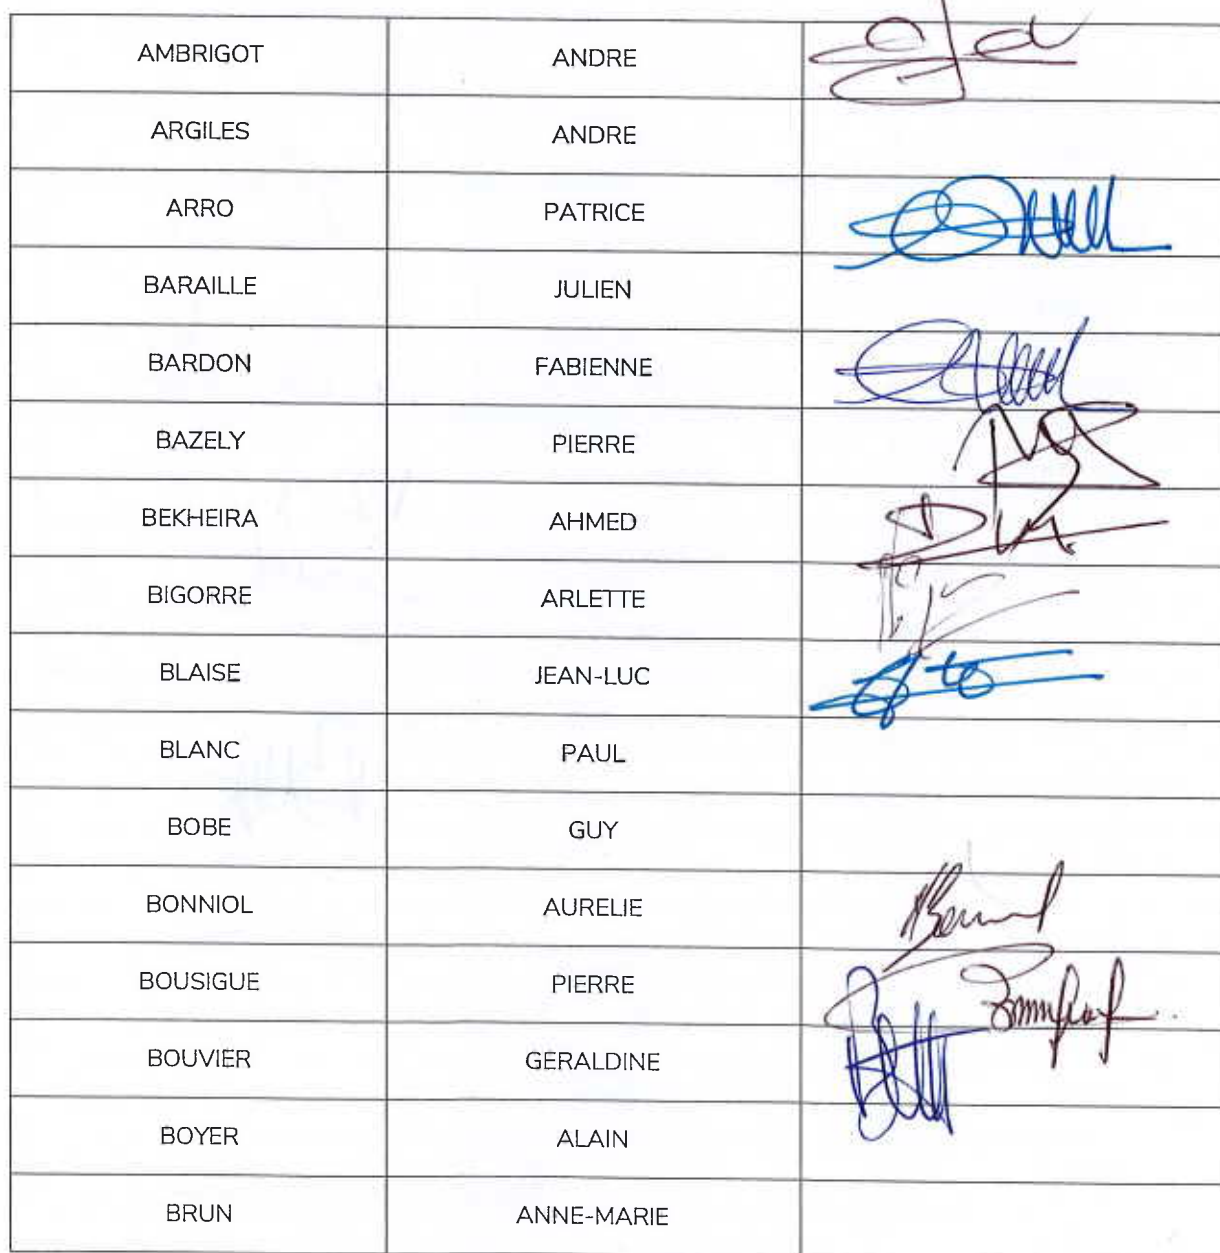 AMBRIGOT ANDRE
ARGILES ANDRE
ARRO PATRICE
BARAILLE JULIEN
BARDON FABIENNE
BAZELY PIERRE
BEKHEIRA AHMED
BIGORRE ARLETTE
BLAISE JEAN-LUC
BLANC PAUL
BOBE GUY
BONNIOL AURELIE
BOUSIGUE PIERRE
BOUVIER GERALDINE
BOYER ALAIN
BRUN ANNE-MARIE